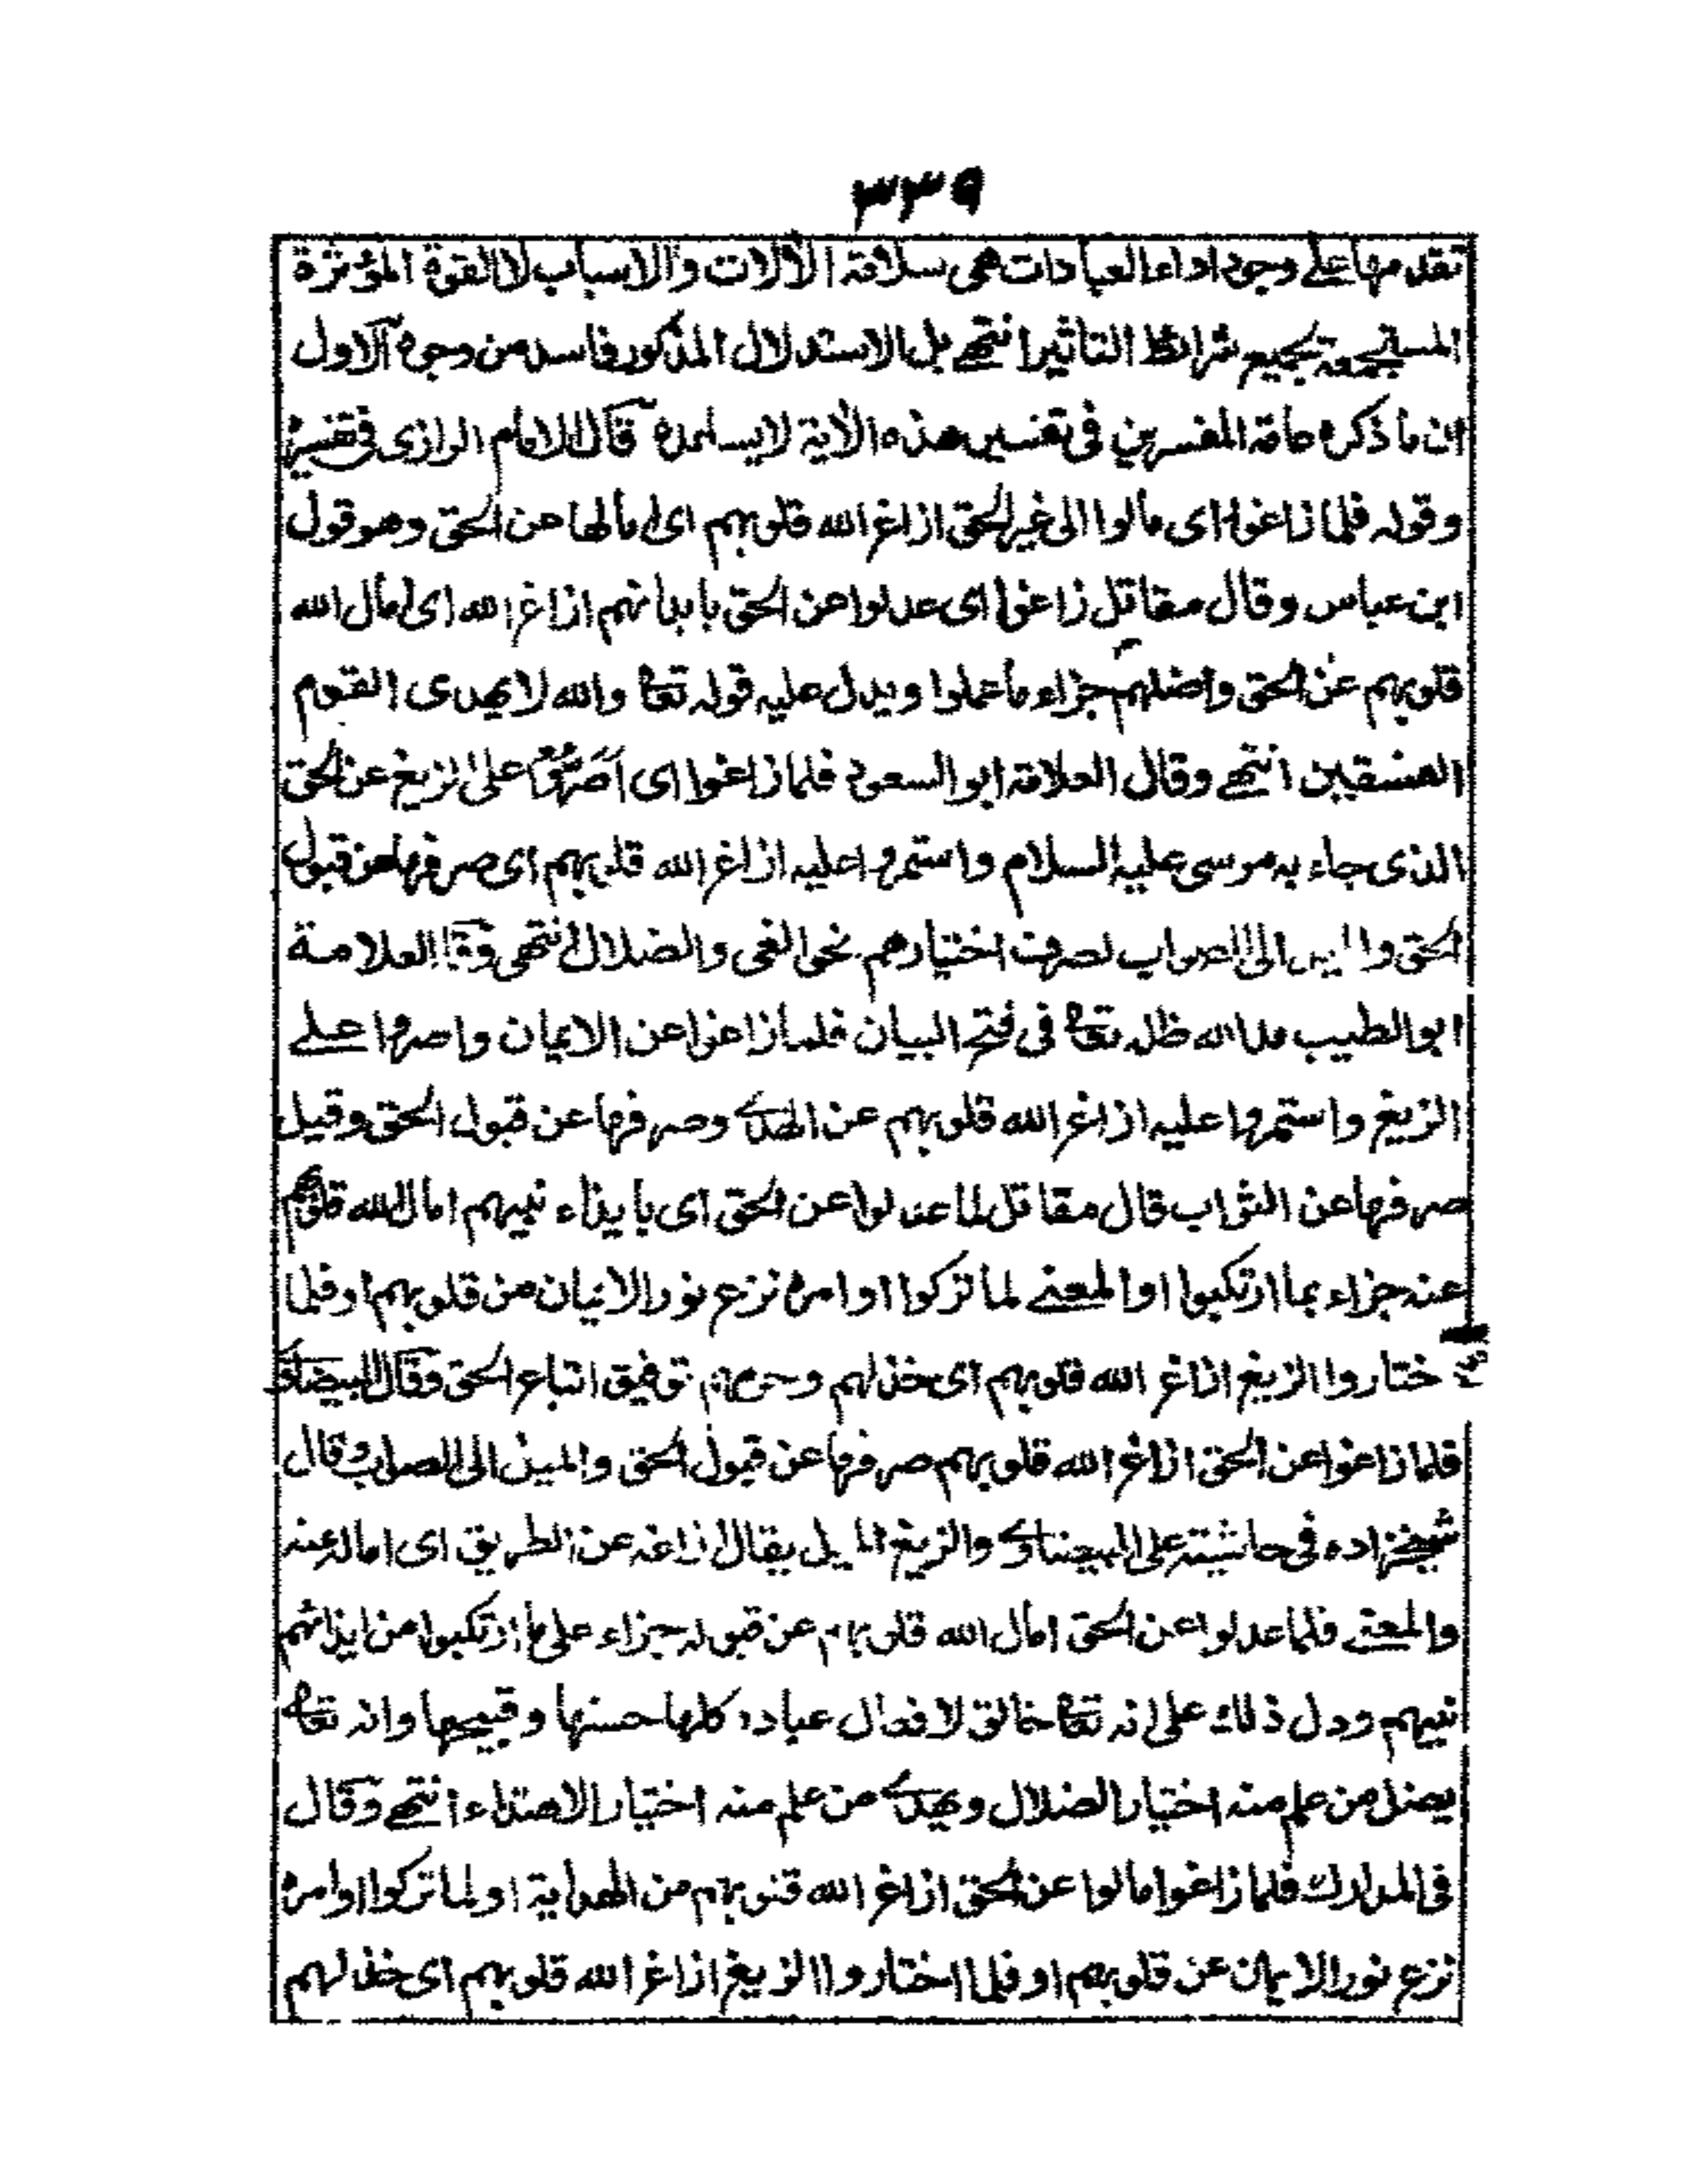 ٣٣٩
تقدمها على وجود اداء العبادات هى سلامة الآلات والاسباب لا القوة المؤثرة
المستجمعة بجميع شرائط التاثير انتهى بل الاستدلال المذكور فاسد من وجوه الاول
ان ما ذكره عامة المفسرين فى تفسير هذه الآية لايساعده قال الامام الرازى فى تفسيره
وقوله فلما زاغوا اى مالوا الى غير الحق ازاغ الله قلوبهم اى امالها عن الحق وهو قول
ابن عباس وقال مقاتل زاغوا اى عدلوا عن الحق بابدانهم ازاغ الله اى امال الله
قلوبهم عن الحق واضلهم جزاء ما عملوا ويدل عليه قوله تعا والله لا يهدى القوم
الفسقين انتهى وقال العلامة ابو السعود فلما زاغوا اى اصروا على الزيغ عن الحق
الذى جاء به موسى عليه السلام واستمروا عليه ازاغ الله قلوبهم اى صرفها عن قبول
الحق والميل الى الصواب لصرف اختيارهم نحو الغى والضلال انتهى وقال العلامة
ابو الطيب مد الله ظله تعا فى فتح البيان فلما زاغوا عن الايمان واصروا على
الزيغ واستمروا عليه ازاغ الله قلوبهم عن الهدى وصرفها عن قبول الحق وقيل
صرفها عن الثواب قال مقاتل لما عدلوا عن الحق اى بايذاء نبيهم امال الله قلوبهم
عنه جزاء بما ارتكبوا او المعنى لما تركوا اوامره نزع نور الايمان من قلوبهم او فلما
ختاروا الزيغ ازاغ الله قلوبهم اى خذلهم وحرمهم توفيق اتباع الحق وقال البيضاوى
فلما زاغوا عن الحق ازاغ الله قلوبهم صرفها عن قبول الحق والميل الى الصواب وقال
شيخزاده فى حاشيته على البيضاوى والزيغ الميل يقال ازاغه عن الطريق اى اماله عنه
والمعنى فلما عدلوا عن الحق امال الله قلوبهم عن قبوله جزاء على ما ارتكبوا من ايذائهم
نبيهم ودل ذلك على انه تعا خالق لافعال عباده كلها حسنها وقبيحها وانه تعا
يضل من علم منه اختيار الضلال ويهدى من علم منه اختيار الاهتداء انتهى وقال
فى المدارك فلما زاغوا مالوا عن الحق ازاغ الله قلوبهم من الهداية او لما تركوا اوامره
نزع نور الايمان عن قلوبهم او فلما اختاروا الزيغ ازاغ الله قلوبهم اى خذلهم